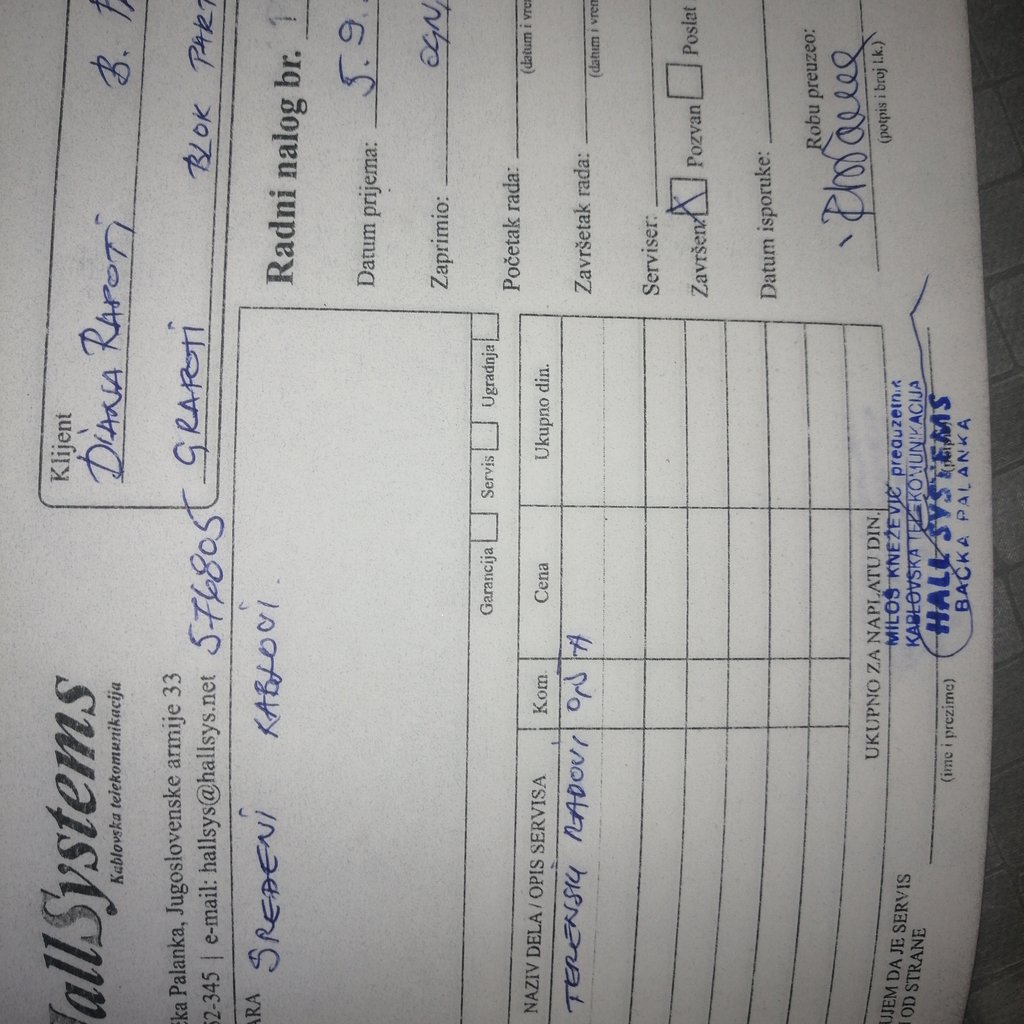 HallSystems
Kablovska telekomunikacija
Palanka, Jugoslovenske armije 33
62-345 | e-mail: hallsys@hallsys.net
576805
Klijent
DIANA RAPOTI B. PA
GRAROTI BLOK PART
SREĐENI KABLOVI.
Garancija Servis Ugradnja
Radni nalog br. 1
Datum prijema: 5.9.
Zaprimio: OGN
Početak rada:
(datum i vrem
Završetak rada:
(datum i vrem
Serviser:
Završen X Pozvan Poslat
Datum isporuke:
Robu preuzeo:
(potpis i broj l.k.)
NAZIV DELA / OPIS SERVISA Kom. Cena Ukupno din.
TERENSKI RADOVI
UKUPNO ZA NAPLATU DIN.
MILOŠ KNEŽEVIĆ preduzetnik
KABLOVSKA TELEKOMUNIKACIJA
HALL SYSTEMS
BAČKA PALANKA
UJEM DA JE SERVIS
OD STRANE
(ime i prezime)